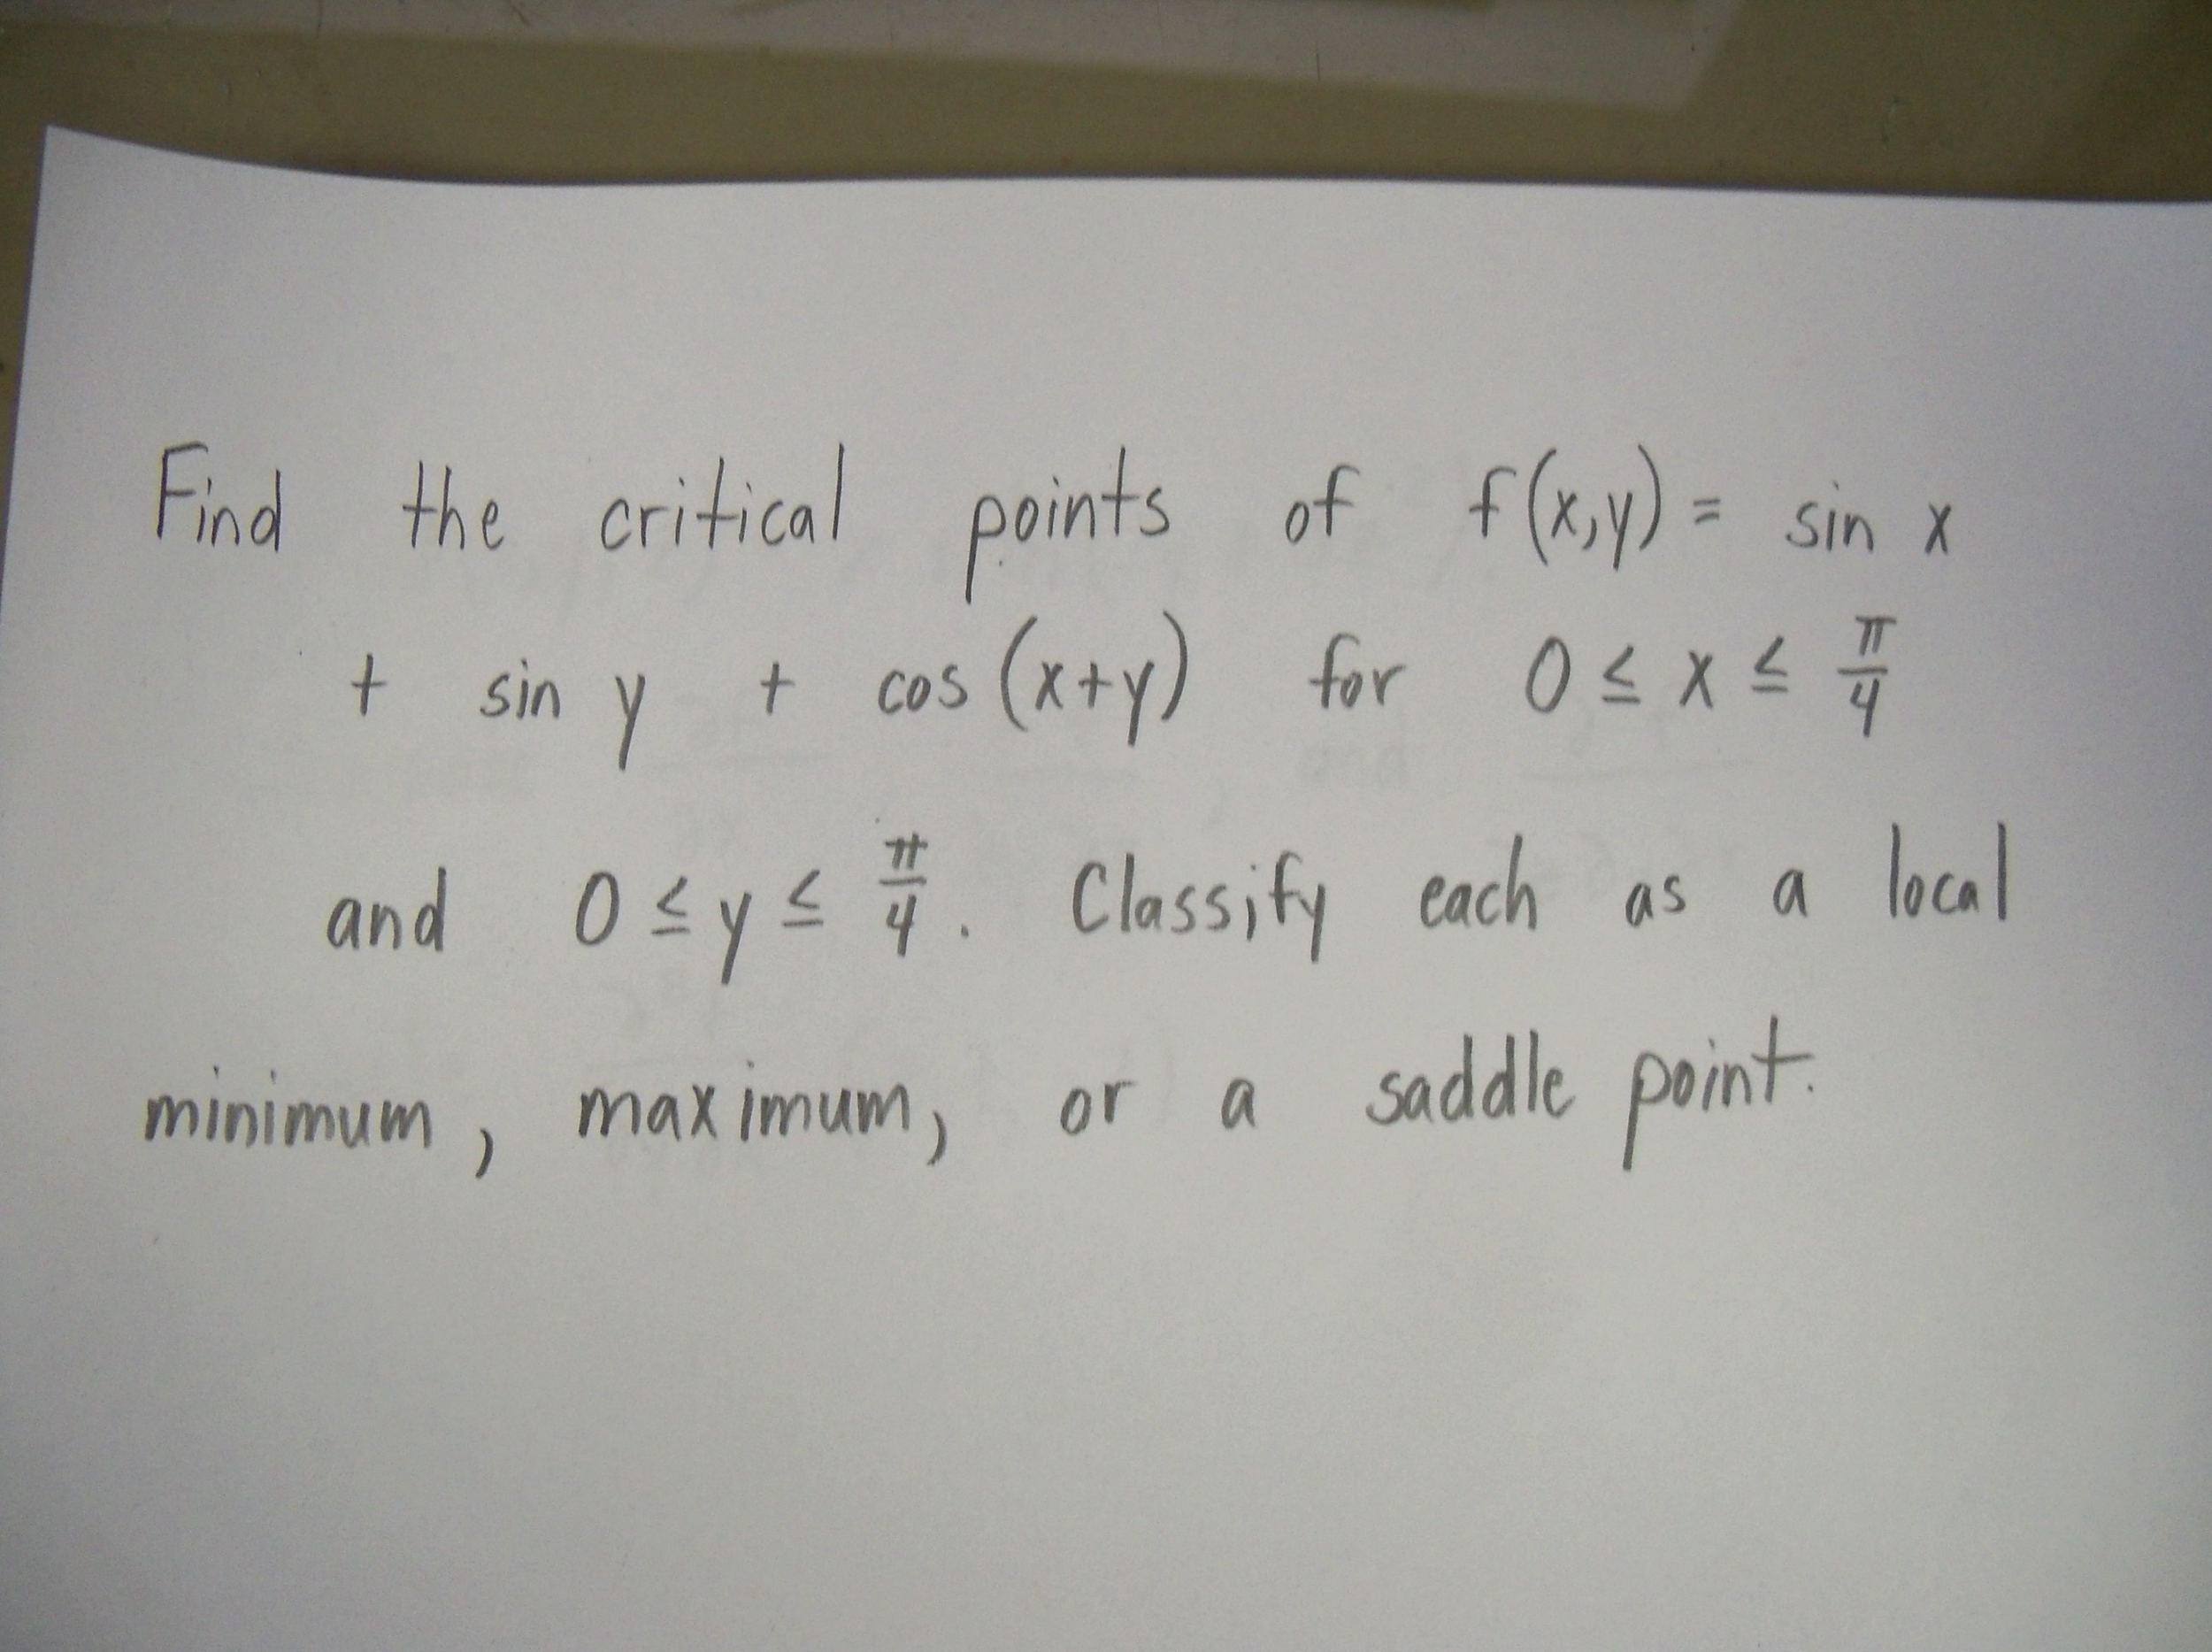 Find the critical points of f(x,y) = sin x
+ sin y + cos (x+y) for 0 ≤ x ≤ π/4
and 0 ≤ y ≤ π/4. Classify each as a local
minimum, maximum, or a saddle point.